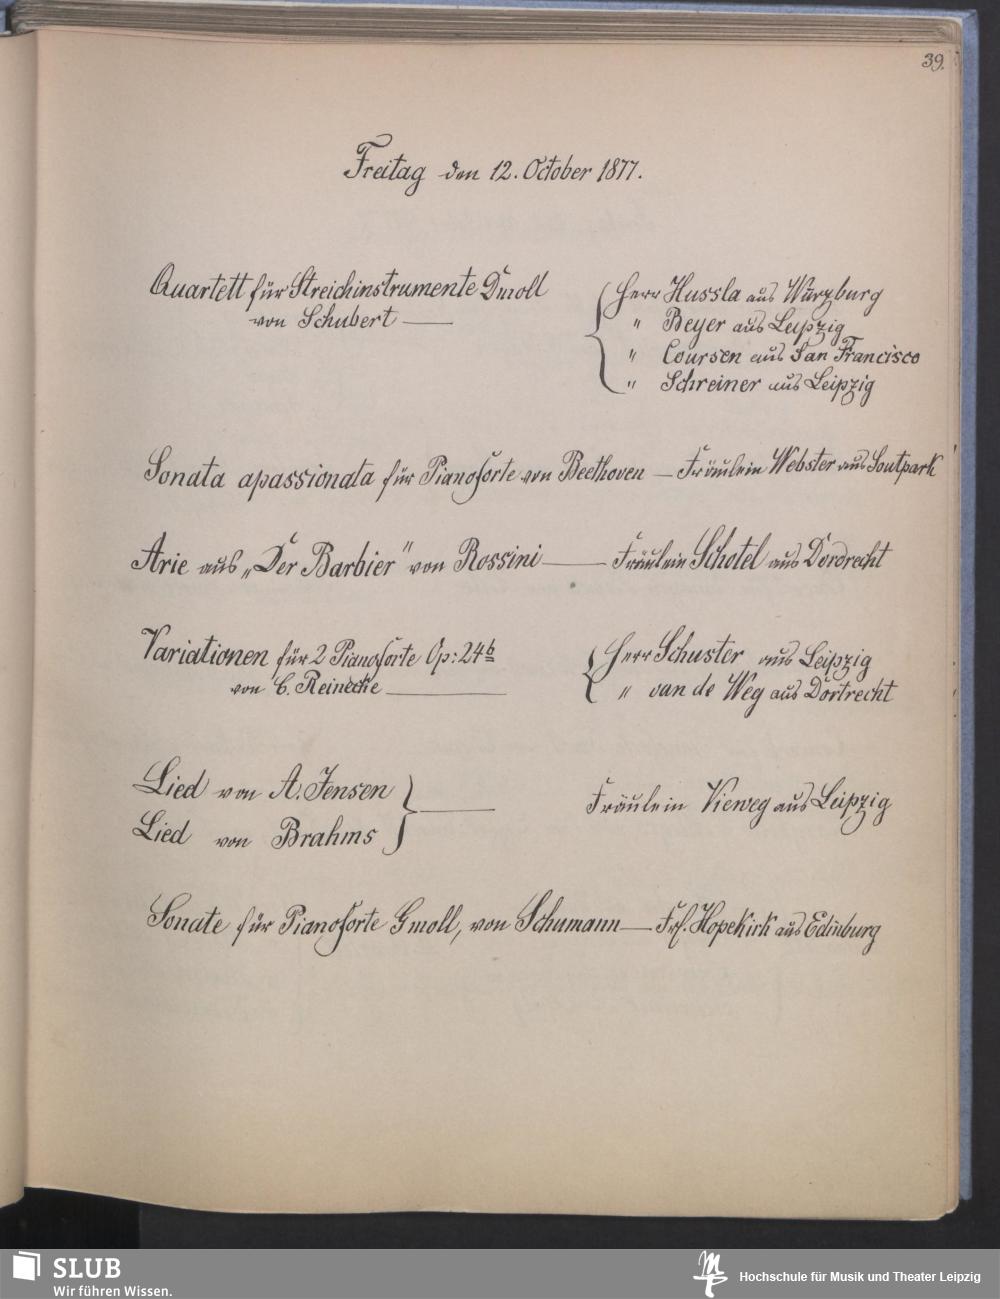 39.
Freitag den 12. October 1877.
Quartett für Streichinstrumente Dmoll
von Schubert —
Herr Hussla aus Würzburg
" Beyer aus Leipzig
" Coursen aus San Francisco
" Schreiner aus Leipzig
Sonata apassionata für Pianoforte von Beethoven — Fräulein Webster aus Soutpark
Arie aus „Der Barbier" von Rossini — Fräulein Schotel aus Dordrecht
Variationen für 2 Pianoforte Op: 24b
von C. Reinecke —
Herr Schuster aus Leipzig
" van de Weg aus Dortrecht
Lied von A. Jensen
Lied von Brahms
— Fräulein Vieweg aus Leipzig
Sonate für Pianoforte Gmoll, von Schumann — Frl. Hopekirk aus Edinburg
SLUB
Wir führen Wissen.
Hochschule für Musik und Theater Leipzig